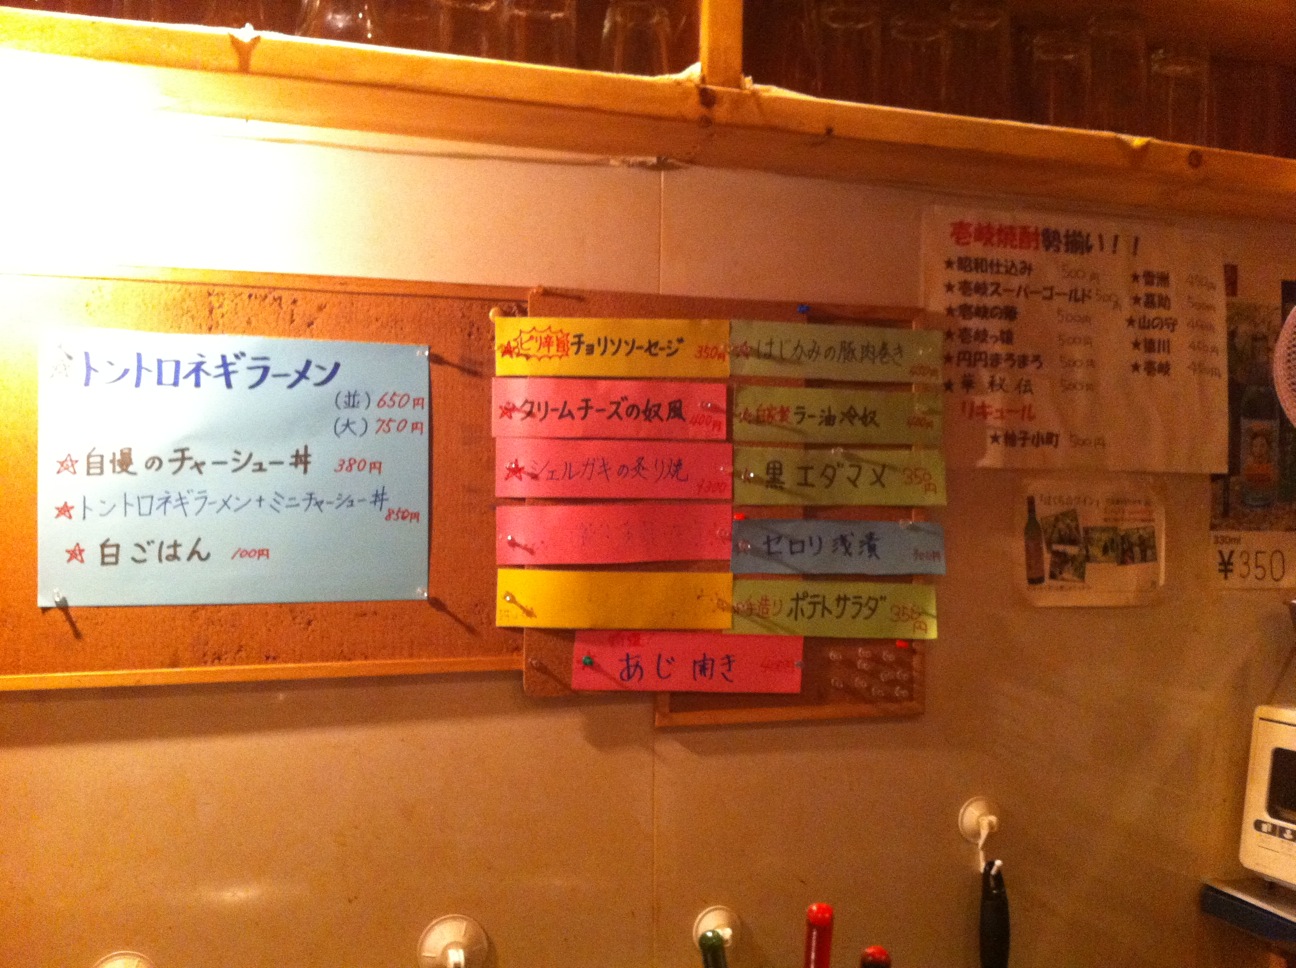 トントロネギラーメン
(並)650円
(大)750円
☆自慢のチャーシュー丼 380円
☆トントロネギラーメン+ミニチャーシュー丼 850円
☆白ごはん 100円
ピリ辛 チョリソソーセージ 350円
☆クリームチーズの奴風 400円
☆シェルガキの炙り焼 ¥300
あじ開き
☆はじかみの豚肉巻き
自家製ラー油冷奴
黒エダマメ 350円
セロリ浅漬
手造りポテトサラダ 350円
壱岐焼酎勢揃い!!
★昭和仕込み 500円
★壱岐スーパーゴールド 500円
★壱岐っ娘 500円
★円円まろまろ 500円
★華秘伝 500円
リキュール
★柚子小町 500円
★雪洲
★嘉助
★山の守
★壱岐
330ml
¥350